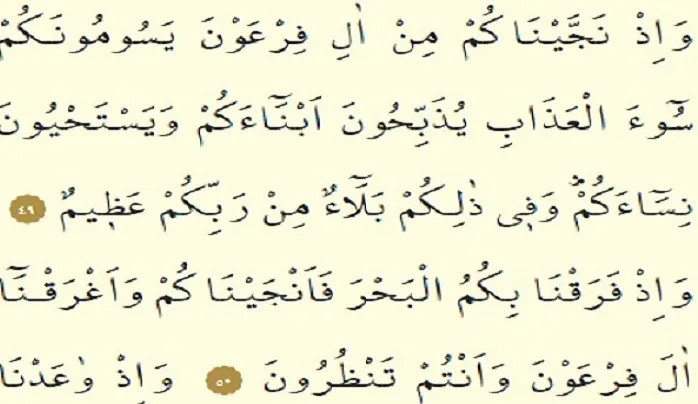 وَاِذْ نَجَّيْنَاكُمْ مِنْ اٰلِ فِرْعَوْنَ يَسُومُونَكُمْ
سُٓوءَ الْعَذَابِ يُذَبِّحُونَ اَبْنَٓاءَكُمْ وَيَسْتَحْيُونَ
نِسَٓاءَكُمْۜ وَفٖي ذٰلِكُمْ بَلَٓاءٌ مِنْ رَبِّكُمْ عَظٖيمٌ ٤٩
وَاِذْ فَرَقْنَا بِكُمُ الْبَحْرَ فَاَنْجَيْنَاكُمْ وَاَغْرَقْنَٓا
اٰلَ فِرْعَوْنَ وَاَنْتُمْ تَنْظُرُونَ ٥٠ وَاِذْ وٰعَدْنَا